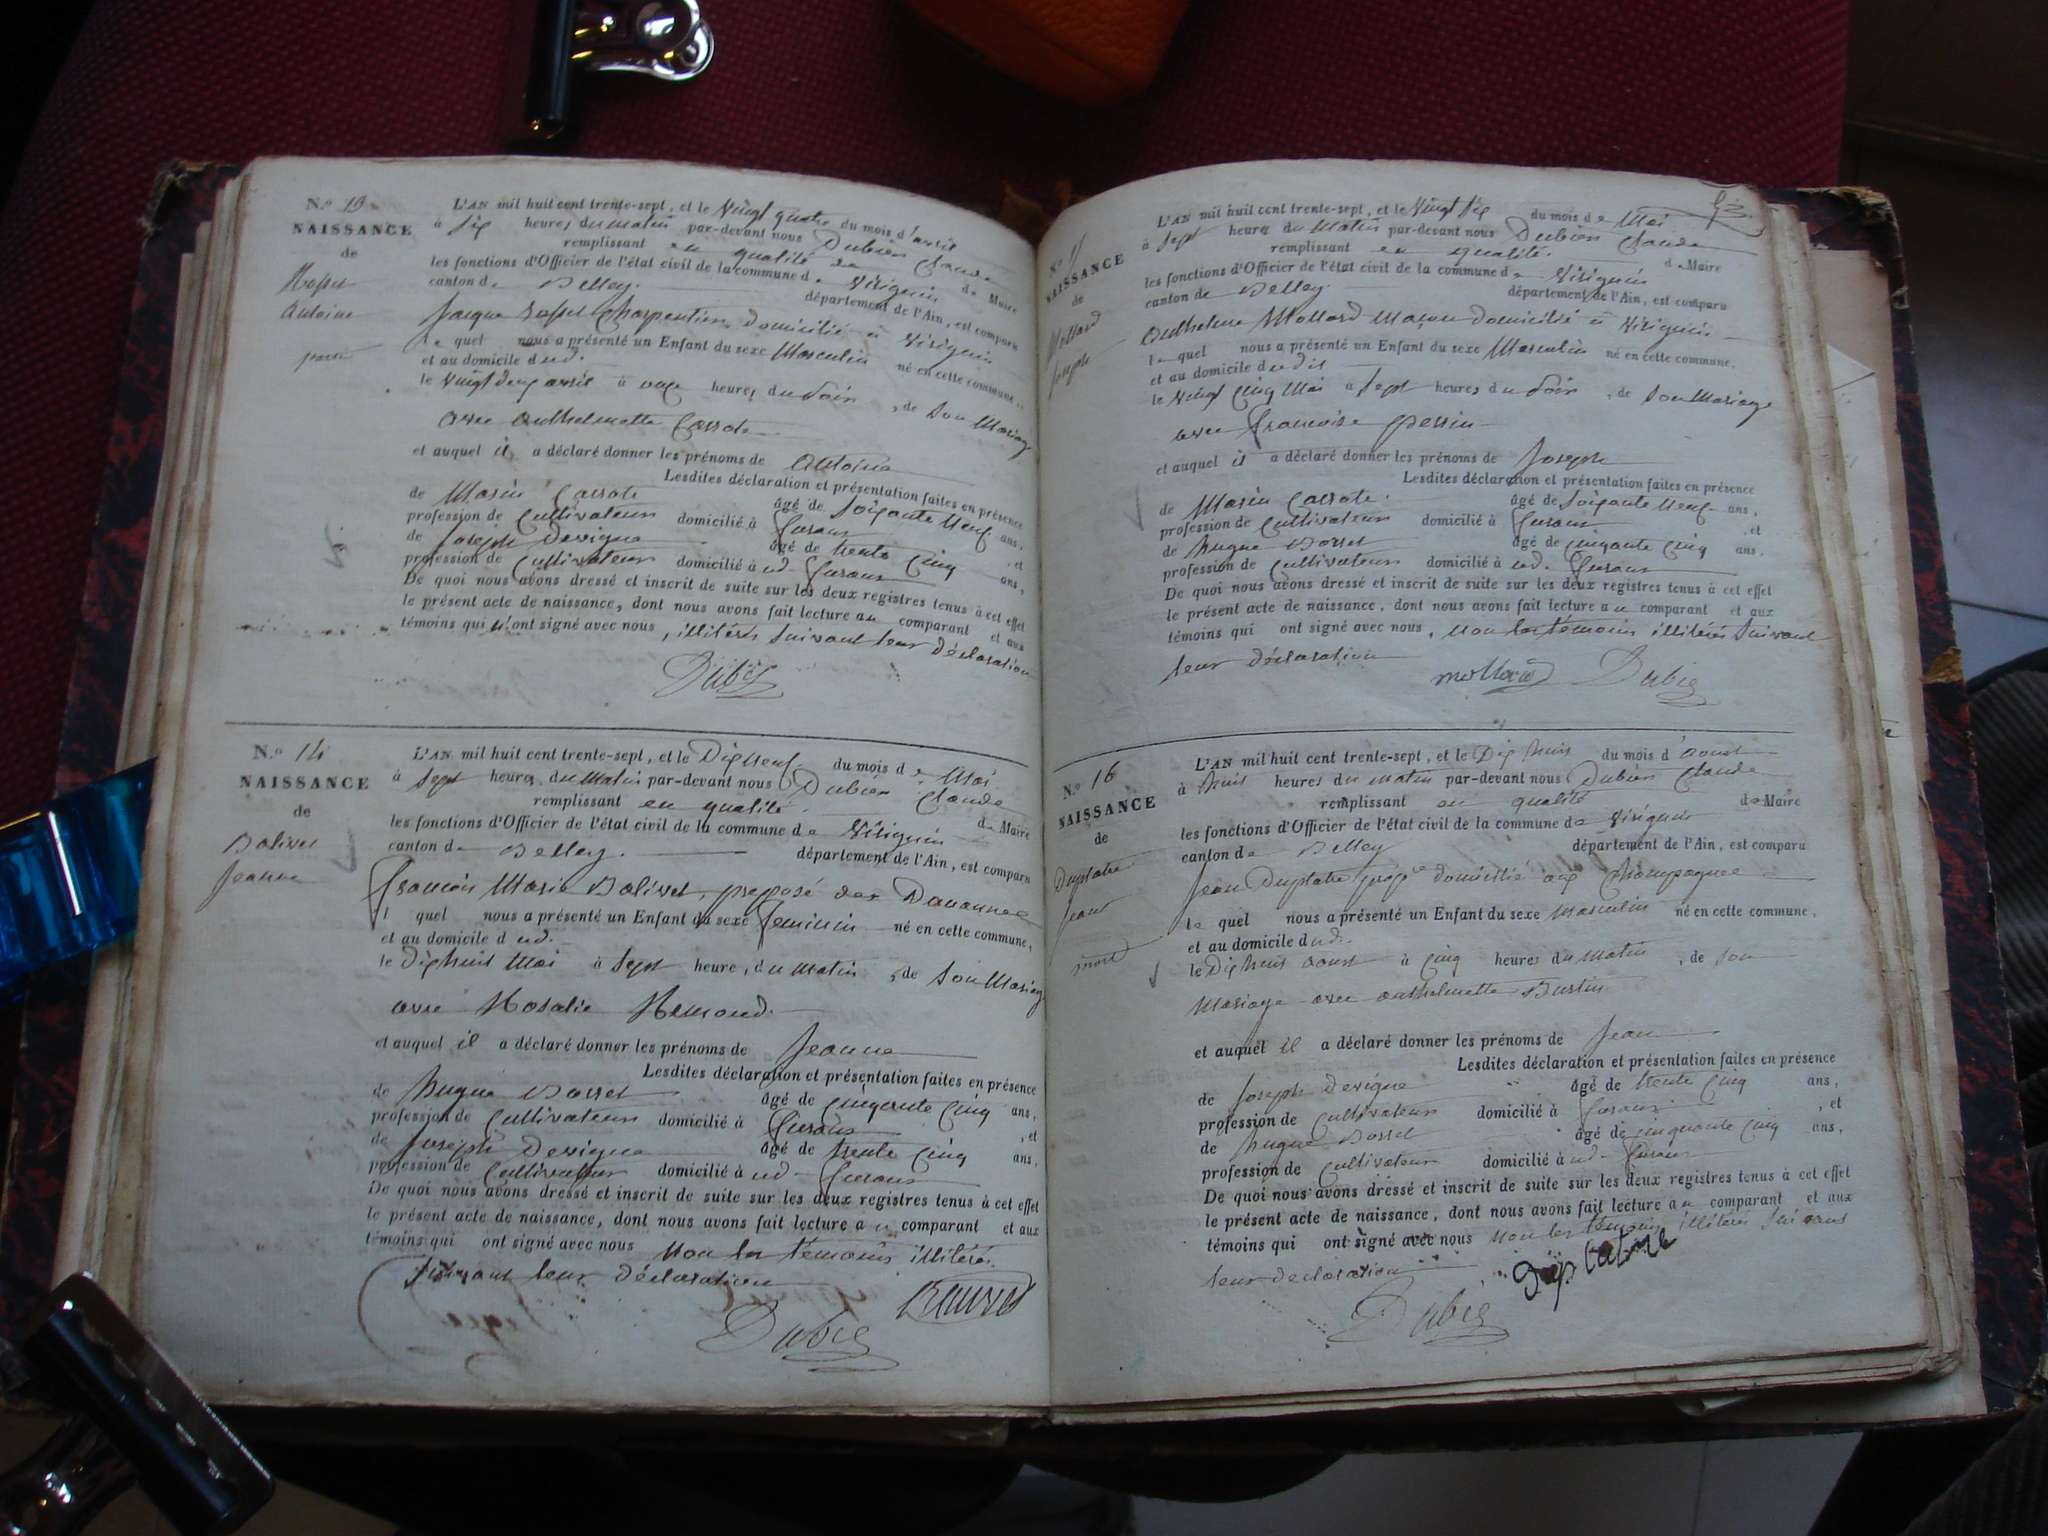 N.o 13
NAISSANCE
de
Rosset
Antoine
L'AN mil huit cent trente-sept, et le vingt quatre du mois d'avril
à six heures du matin par-devant nous Dubien Claude
remplissant en qualité de de Maire
les fonctions d'Officier de l'état civil de la commune de Virignin
canton de Belley. département de l'Ain, est comparu
Jacque Rosset Charpentier domicilié à Virignin
le quel nous a présenté un Enfant du sexe Masculin né en cette commune,
et au domicile dud.
le vingt deux avril à onze heures du soir, de son Mariage
avec Anthelmette Carrote
et auquel il a déclaré donner les prénoms de Antoine
Lesdites déclaration et présentation faites en présence
de Marin Carrote âgé de soixante neuf ans,
profession de Cultivateur domicilié à Lurans, et
de Joseph Devigne âgé de trente cinq ans,
profession de Cultivateur domicilié à ud. Lurans
De quoi nous avons dressé et inscrit de suite sur les deux registres tenus à cet effet
le présent acte de naissance, dont nous avons fait lecture au comparant et aux
témoins qui n'ont signé avec nous, illitérés suivant leur déclaration
Dubien
N.o 14
NAISSANCE
de
Balivet
Jeanne
L'AN mil huit cent trente-sept, et le Dix neuf du mois de Mai
à sept heures du matin par-devant nous Dubien Claude
remplissant en qualité de Maire
les fonctions d'Officier de l'état civil de la commune de Virignin
canton de Belley. département de l'Ain, est comparu
François Marie Balivet, preposé des Douannes
l quel nous a présenté un Enfant du sexe feminin né en cette commune,
et au domicile dud.
le Dix huit Mai à sept heure, du matin, de son Mariage
avec Rosalie Remond.
et auquel il a déclaré donner les prénoms de Jeanne
Lesdites déclaration et présentation faites en présence
de hugue Borset âgé de cinqante cinq ans,
profession de Cultivateur domicilié à Lurans, et
de Joseph Devigne âgé de trente cinq ans,
profession de Cultivateur domicilié à ud. Lurans
De quoi nous avons dressé et inscrit de suite sur les deux registres tenus à cet effet
le présent acte de naissance, dont nous avons fait lecture au comparant et aux
témoins qui ont signé avec nous non les témoins illitérés
suivant leur déclaration
Dubien
NAISSANCE
de
Mollard
Joseph
L'AN mil huit cent trente-sept, et le vingt six du mois de Mai
à sept heures du matin par-devant nous Dubien Claude
remplissant en qualité. de Maire
les fonctions d'Officier de l'état civil de la commune de Virignin
canton de Belley. département de l'Ain, est comparu
Anthelme Mollard Maçon domicilié à Virignin
le quel nous a présenté un Enfant du sexe Masculin né en cette commune,
et au domicile dudit
le vingt cinq Mai à sept heures du soir, de son Mariage
avec Françoise perrin
et auquel il a déclaré donner les prénoms de Joseph
Lesdites déclaration et présentation faites en présence
de Marin Carrote. âgé de soixante neuf ans,
profession de Cultivateur domicilié à Lurans, et
de hugue Borset âgé de cinqante cinq ans,
profession de Cultivateur domicilié à ud. Lurans
De quoi nous avons dressé et inscrit de suite sur les deux registres tenus à cet effet
le présent acte de naissance, dont nous avons fait lecture au comparant et aux
témoins qui ont signé avec nous, non les témoins illitérés suivant
leur déclaration
mollard Dubien
N.o 16
NAISSANCE
de
Duplatre
Jean
mort
L'AN mil huit cent trente-sept, et le Dix huit du mois d'aoust
à huit heures du matin par-devant nous Dubien Claude
remplissant en qualité de Maire
les fonctions d'Officier de l'état civil de la commune de Virignin
canton de Belley département de l'Ain, est comparu
Jean Duplatre propre domicilié aux Champagnes
le quel nous a présenté un Enfant du sexe masculin né en cette commune,
et au domicile dud.
le Dix huit aoust à cinq heures du matin, de son
Mariage avec anthelmette Burtin
et auquel il a déclaré donner les prénoms de Jean
Lesdites déclaration et présentation faites en présence
de Joseph Devigne âgé de trente cinq ans,
profession de Cultivateur domicilié à Lurans, et
de hugue Borset âgé de cinquante cinq ans,
profession de Cultivateur domicilié à ud. Lurans
De quoi nous avons dressé et inscrit de suite sur les deux registres tenus à cet effet
le présent acte de naissance, dont nous avons fait lecture au comparant et aux
témoins qui ont signé avec nous non les témoins illitérés suivant
leur declaration
Duplatre
Dubien